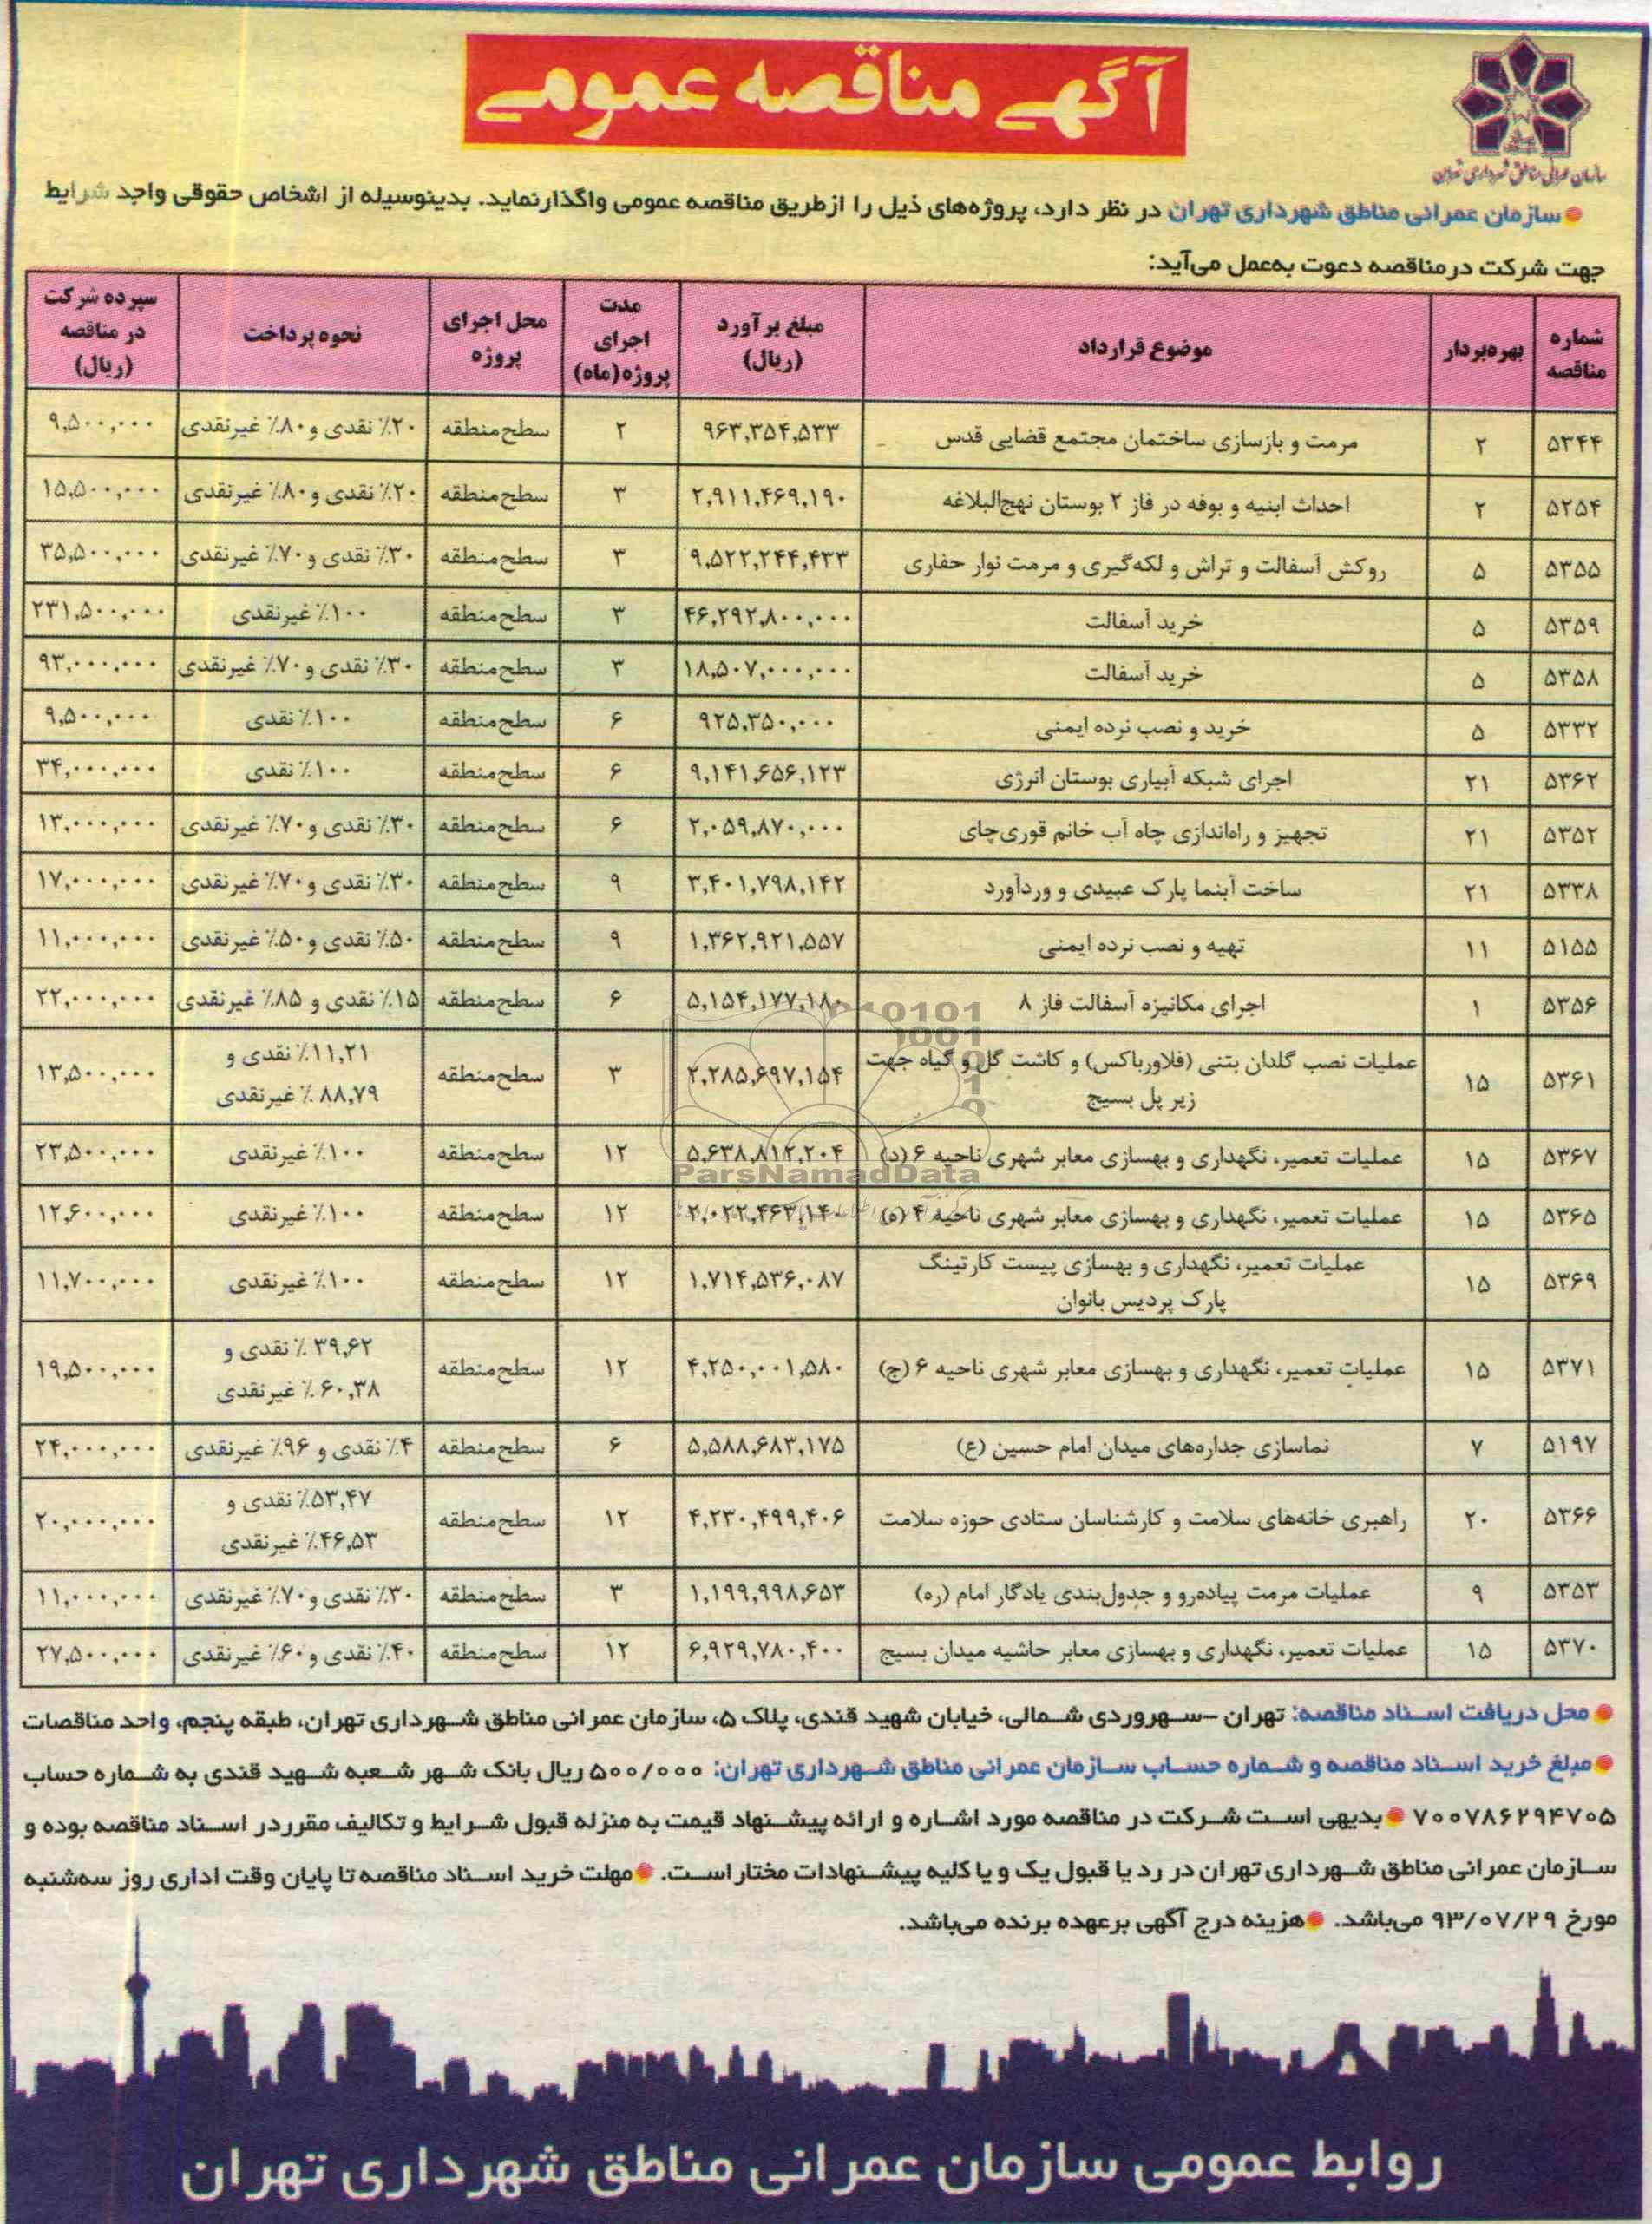 آگهی مناقصه عمومی
سازمان عمرانی مناطق شهرداری تهران
سازمان عمرانی مناطق شهرداری تهران در نظر دارد، پروژه‌های ذیل را ازطریق مناقصه عمومی واگذارنماید. بدینوسیله از اشخاص حقوقی واجد شرایط
جهت شرکت درمناقصه دعوت به‌عمل می‌آید:
شماره مناقصه | بهره‌بردار | موضوع قرارداد | مبلغ برآورد (ریال) | مدت اجرای پروژه(ماه) | محل اجرای پروژه | نحوه پرداخت | سپرده شرکت در مناقصه (ریال)
۵۳۴۴ | ۲ | مرمت و بازسازی ساختمان مجتمع قضایی قدس | ۹۶۳,۳۵۴,۵۳۳ | ۲ | سطح‌منطقه | ۲۰٪ نقدی و ۸۰٪ غیرنقدی | ۹,۵۰۰,۰۰۰
۵۲۵۴ | ۲ | احداث ابنیه و بوفه در فاز ۲ بوستان نهج‌البلاغه | ۲,۹۱۱,۴۶۹,۱۹۰ | ۳ | سطح‌منطقه | ۲۰٪ نقدی و ۸۰٪ غیرنقدی | ۱۵,۵۰۰,۰۰۰
۵۳۵۵ | ۵ | روکش آسفالت و تراش و لکه‌گیری و مرمت نوار حفاری | ۹,۵۲۲,۲۴۴,۴۳۳ | ۳ | سطح‌منطقه | ۳۰٪ نقدی و ۷۰٪ غیرنقدی | ۳۵,۵۰۰,۰۰۰
۵۳۵۹ | ۵ | خرید آسفالت | ۴۶,۲۹۲,۸۰۰,۰۰۰ | ۳ | سطح‌منطقه | ۱۰۰٪ غیرنقدی | ۲۳۱,۵۰۰,۰۰۰
۵۳۵۸ | ۵ | خرید آسفالت | ۱۸,۵۰۷,۰۰۰,۰۰۰ | ۳ | سطح‌منطقه | ۳۰٪ نقدی و ۷۰٪ غیرنقدی | ۹۳,۰۰۰,۰۰۰
۵۳۳۲ | ۵ | خرید و نصب نرده ایمنی | ۹۲۵,۳۵۰,۰۰۰ | ۶ | سطح‌منطقه | ۱۰۰٪ نقدی | ۹,۵۰۰,۰۰۰
۵۳۶۲ | ۲۱ | اجرای شبکه آبیاری بوستان انرژی | ۹,۱۴۱,۶۵۶,۱۲۳ | ۶ | سطح‌منطقه | ۱۰۰٪ نقدی | ۳۴,۰۰۰,۰۰۰
۵۳۵۲ | ۲۱ | تجهیز و راه‌اندازی چاه آب خانم قوری‌چای | ۲,۰۵۹,۸۷۰,۰۰۰ | ۶ | سطح‌منطقه | ۳۰٪ نقدی و ۷۰٪ غیرنقدی | ۱۳,۰۰۰,۰۰۰
۵۳۳۸ | ۲۱ | ساخت آبنما پارک عبیدی و وردآورد | ۳,۴۰۱,۷۹۸,۱۴۲ | ۹ | سطح‌منطقه | ۳۰٪ نقدی و ۷۰٪ غیرنقدی | ۱۷,۰۰۰,۰۰۰
۵۱۵۵ | ۱۱ | تهیه و نصب نرده ایمنی | ۱,۳۶۲,۹۲۱,۵۵۷ | ۹ | سطح‌منطقه | ۵۰٪ نقدی و ۵۰٪ غیرنقدی | ۱۱,۰۰۰,۰۰۰
۵۳۵۶ | ۱ | اجرای مکانیزه آسفالت فاز ۸ | ۵,۱۵۴,۱۷۷,۱۸۰ | ۶ | سطح‌منطقه | ۱۵٪ نقدی و ۸۵٪ غیرنقدی | ۲۲,۰۰۰,۰۰۰
۵۳۶۱ | ۱۵ | عملیات نصب گلدان بتنی (فلاورباکس) و کاشت گل و گیاه جهت زیر پل بسیج | ۲,۲۸۵,۶۹۷,۱۵۴ | ۳ | سطح‌منطقه | ۱۱,۲۱٪ نقدی و ۸۸,۷۹٪ غیرنقدی | ۱۳,۵۰۰,۰۰۰
۵۳۶۷ | ۱۵ | عملیات تعمیر، نگهداری و بهسازی معابر شهری ناحیه ۶ (د) | ۵,۶۳۸,۸۱۲,۲۰۴ | ۱۲ | سطح‌منطقه | ۱۰۰٪ غیرنقدی | ۲۳,۵۰۰,۰۰۰
۵۳۶۵ | ۱۵ | عملیات تعمیر، نگهداری و بهسازی معابر شهری ناحیه ۴ (ه) | ۲,۰۲۲,۴۶۳,۱۴۰ | ۱۲ | سطح‌منطقه | ۱۰۰٪ غیرنقدی | ۱۲,۶۰۰,۰۰۰
۵۳۶۹ | ۱۵ | عملیات تعمیر، نگهداری و بهسازی پیست کارتینگ پارک پردیس بانوان | ۱,۷۱۴,۵۳۶,۰۸۷ | ۱۲ | سطح‌منطقه | ۱۰۰٪ غیرنقدی | ۱۱,۷۰۰,۰۰۰
۵۳۷۱ | ۱۵ | عملیات تعمیر، نگهداری و بهسازی معابر شهری ناحیه ۶ (ج) | ۴,۲۵۰,۰۰۱,۵۸۰ | ۱۲ | سطح‌منطقه | ۳۹,۶۲٪ نقدی و ۶۰,۳۸٪ غیرنقدی | ۱۹,۵۰۰,۰۰۰
۵۱۹۷ | ۷ | نماسازی جداره‌های میدان امام حسین (ع) | ۵,۵۸۸,۶۸۳,۱۷۵ | ۶ | سطح‌منطقه | ۴٪ نقدی و ۹۶٪ غیرنقدی | ۲۴,۰۰۰,۰۰۰
۵۳۶۶ | ۲۰ | راهبری خانه‌های سلامت و کارشناسان ستادی حوزه سلامت | ۴,۲۳۰,۴۹۹,۴۰۶ | ۱۲ | سطح‌منطقه | ۵۳,۴۷٪ نقدی و ۴۶,۵۳٪ غیرنقدی | ۲۰,۰۰۰,۰۰۰
۵۳۵۳ | ۹ | عملیات مرمت پیاده‌رو و جدول‌بندی یادگار امام (ره) | ۱,۱۹۹,۹۹۸,۶۵۳ | ۳ | سطح‌منطقه | ۳۰٪ نقدی و ۷۰٪ غیرنقدی | ۱۱,۰۰۰,۰۰۰
۵۳۷۰ | ۱۵ | عملیات تعمیر، نگهداری و بهسازی معابر حاشیه میدان بسیج | ۶,۹۲۹,۷۸۰,۴۰۰ | ۱۲ | سطح‌منطقه | ۴۰٪ نقدی و ۶۰٪ غیرنقدی | ۲۷,۵۰۰,۰۰۰
ParsNamadData
محل دریافت اسناد مناقصه: تهران –سهروردی شمالی، خیابان شهید قندی، پلاک ۵، سازمان عمرانی مناطق شهرداری تهران، طبقه پنجم، واحد مناقصات
مبلغ خرید اسناد مناقصه و شماره حساب سازمان عمرانی مناطق شهرداری تهران: ۵۰۰/۰۰۰ ریال بانک شهر شعبه شهید قندی به شماره حساب
۷۰۰۷۸۶۲۹۴۷۰۵ بدیهی است شرکت در مناقصه مورد اشاره و ارائه پیشنهاد قیمت به منزله قبول شرایط و تکالیف مقرردر اسناد مناقصه بوده و
سازمان عمرانی مناطق شهرداری تهران در رد یا قبول یک و یا کلیه پیشنهادات مختار است. مهلت خرید اسناد مناقصه تا پایان وقت اداری روز سه‌شنبه
مورخ ۹۳/۰۷/۲۹ می‌باشد. هزینه درج آگهی برعهده برنده می‌باشد.
روابط عمومی سازمان عمرانی مناطق شهرداری تهران